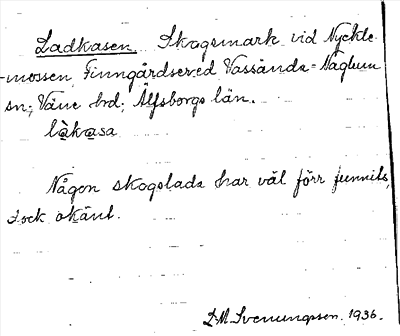 Ladkasen Skogsmark vid Nyckle
-mossen, Finngårdsered Vassända-Naglum
sn; Väne hd; Älfsborgs län.
làkasa
Någon skogslada har väl förr funnits,
dock okänt.
D.M. Svenungsson. 1936.